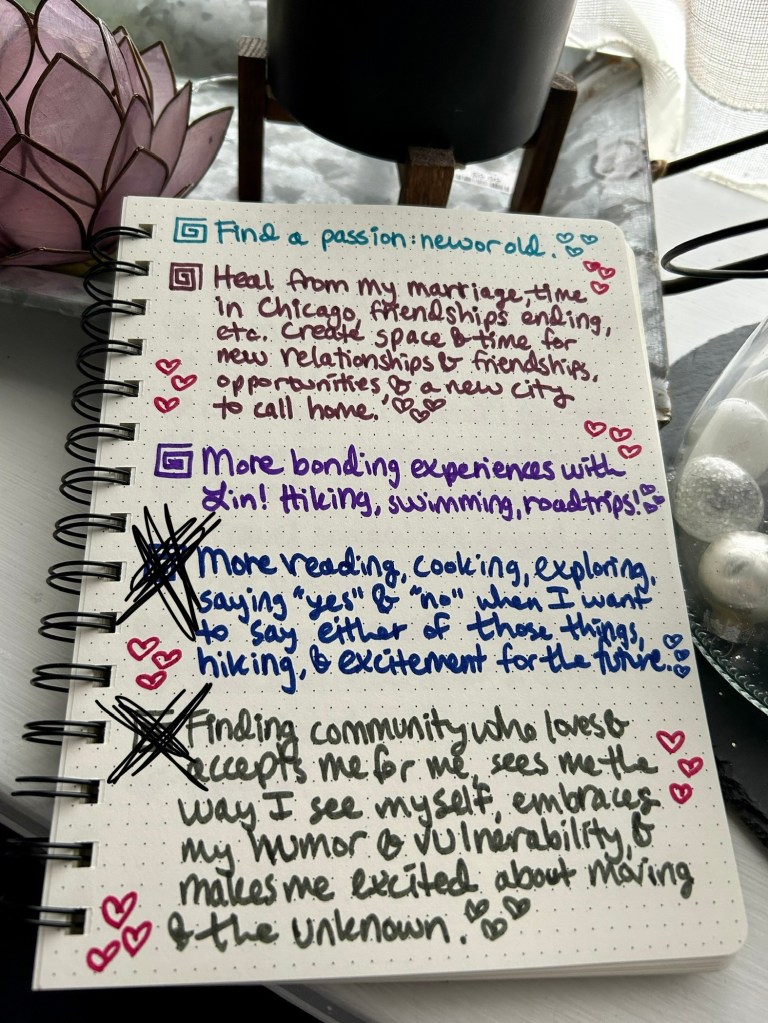 Find a passion: new or old.
Heal from my marriage, time
in Chicago, friendships ending,
etc. Create space & time for
new relationships & friendships,
opportunities, & a new city
to call home.
More bonding experiences with
Lin! Hiking, swimming, roadtrips!
More reading, cooking, exploring,
saying "yes" & "no" when I want
to say either of those things,
hiking, & excitement for the future.
Finding community who loves &
accepts me for me, sees me the
way I see myself, embraces
my humor & vulnerability, &
makes me excited about moving
& the unknown.